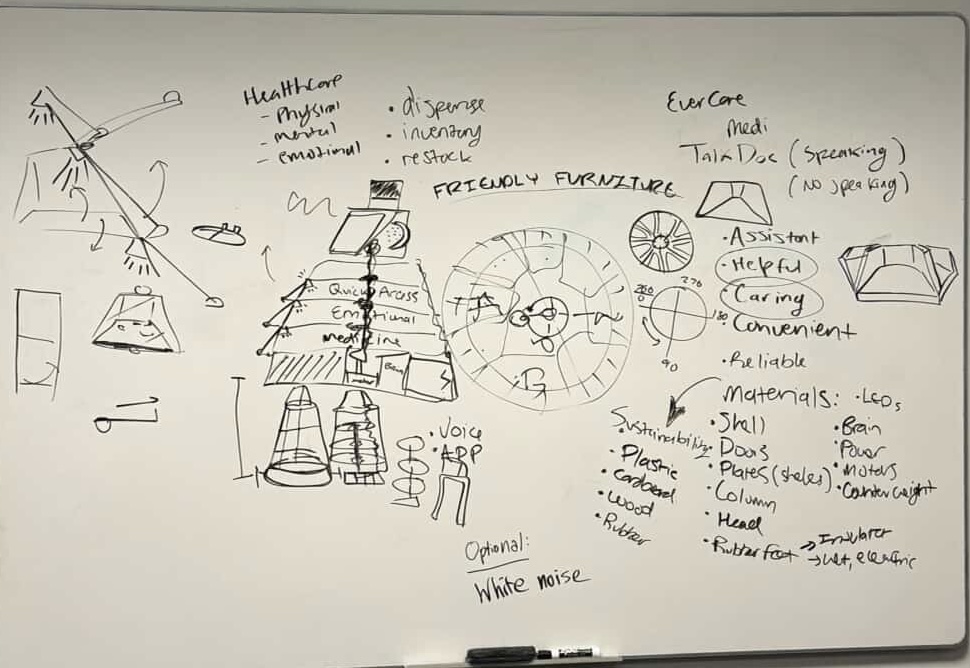 Healthcare
- Physical
- mental
- emotional
• dispense
• inventory
• restock
EverCare
Medi
TalkDoc (Speaking)
(No speaking)
FRIENDLY FURNITURE
Quick Access
Emotional
medicine
motor
Brain
270
180
90
0
• Assistant
• Helpful
Caring
• Convenient
• Reliable
• Voice
• APP
Sustainability
• Plastic
• Cardboard
• Wood
• Rubber
Materials:
• Shell
• Doors
• Plates (shelves)
• Column
• Head
• Rubber feet → Insulator
→ wet, electric
• LEDs
• Brain
• Power
• Motors
• Counter weight
Optional:
White noise